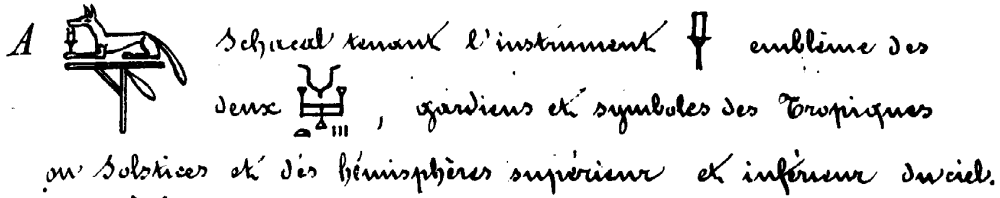 A Schacal tenant l'instrument emblême des
deux , gardiens et symboles des Tropiques
ou Solstices et des hémisphères supérieur et inférieur du ciel.